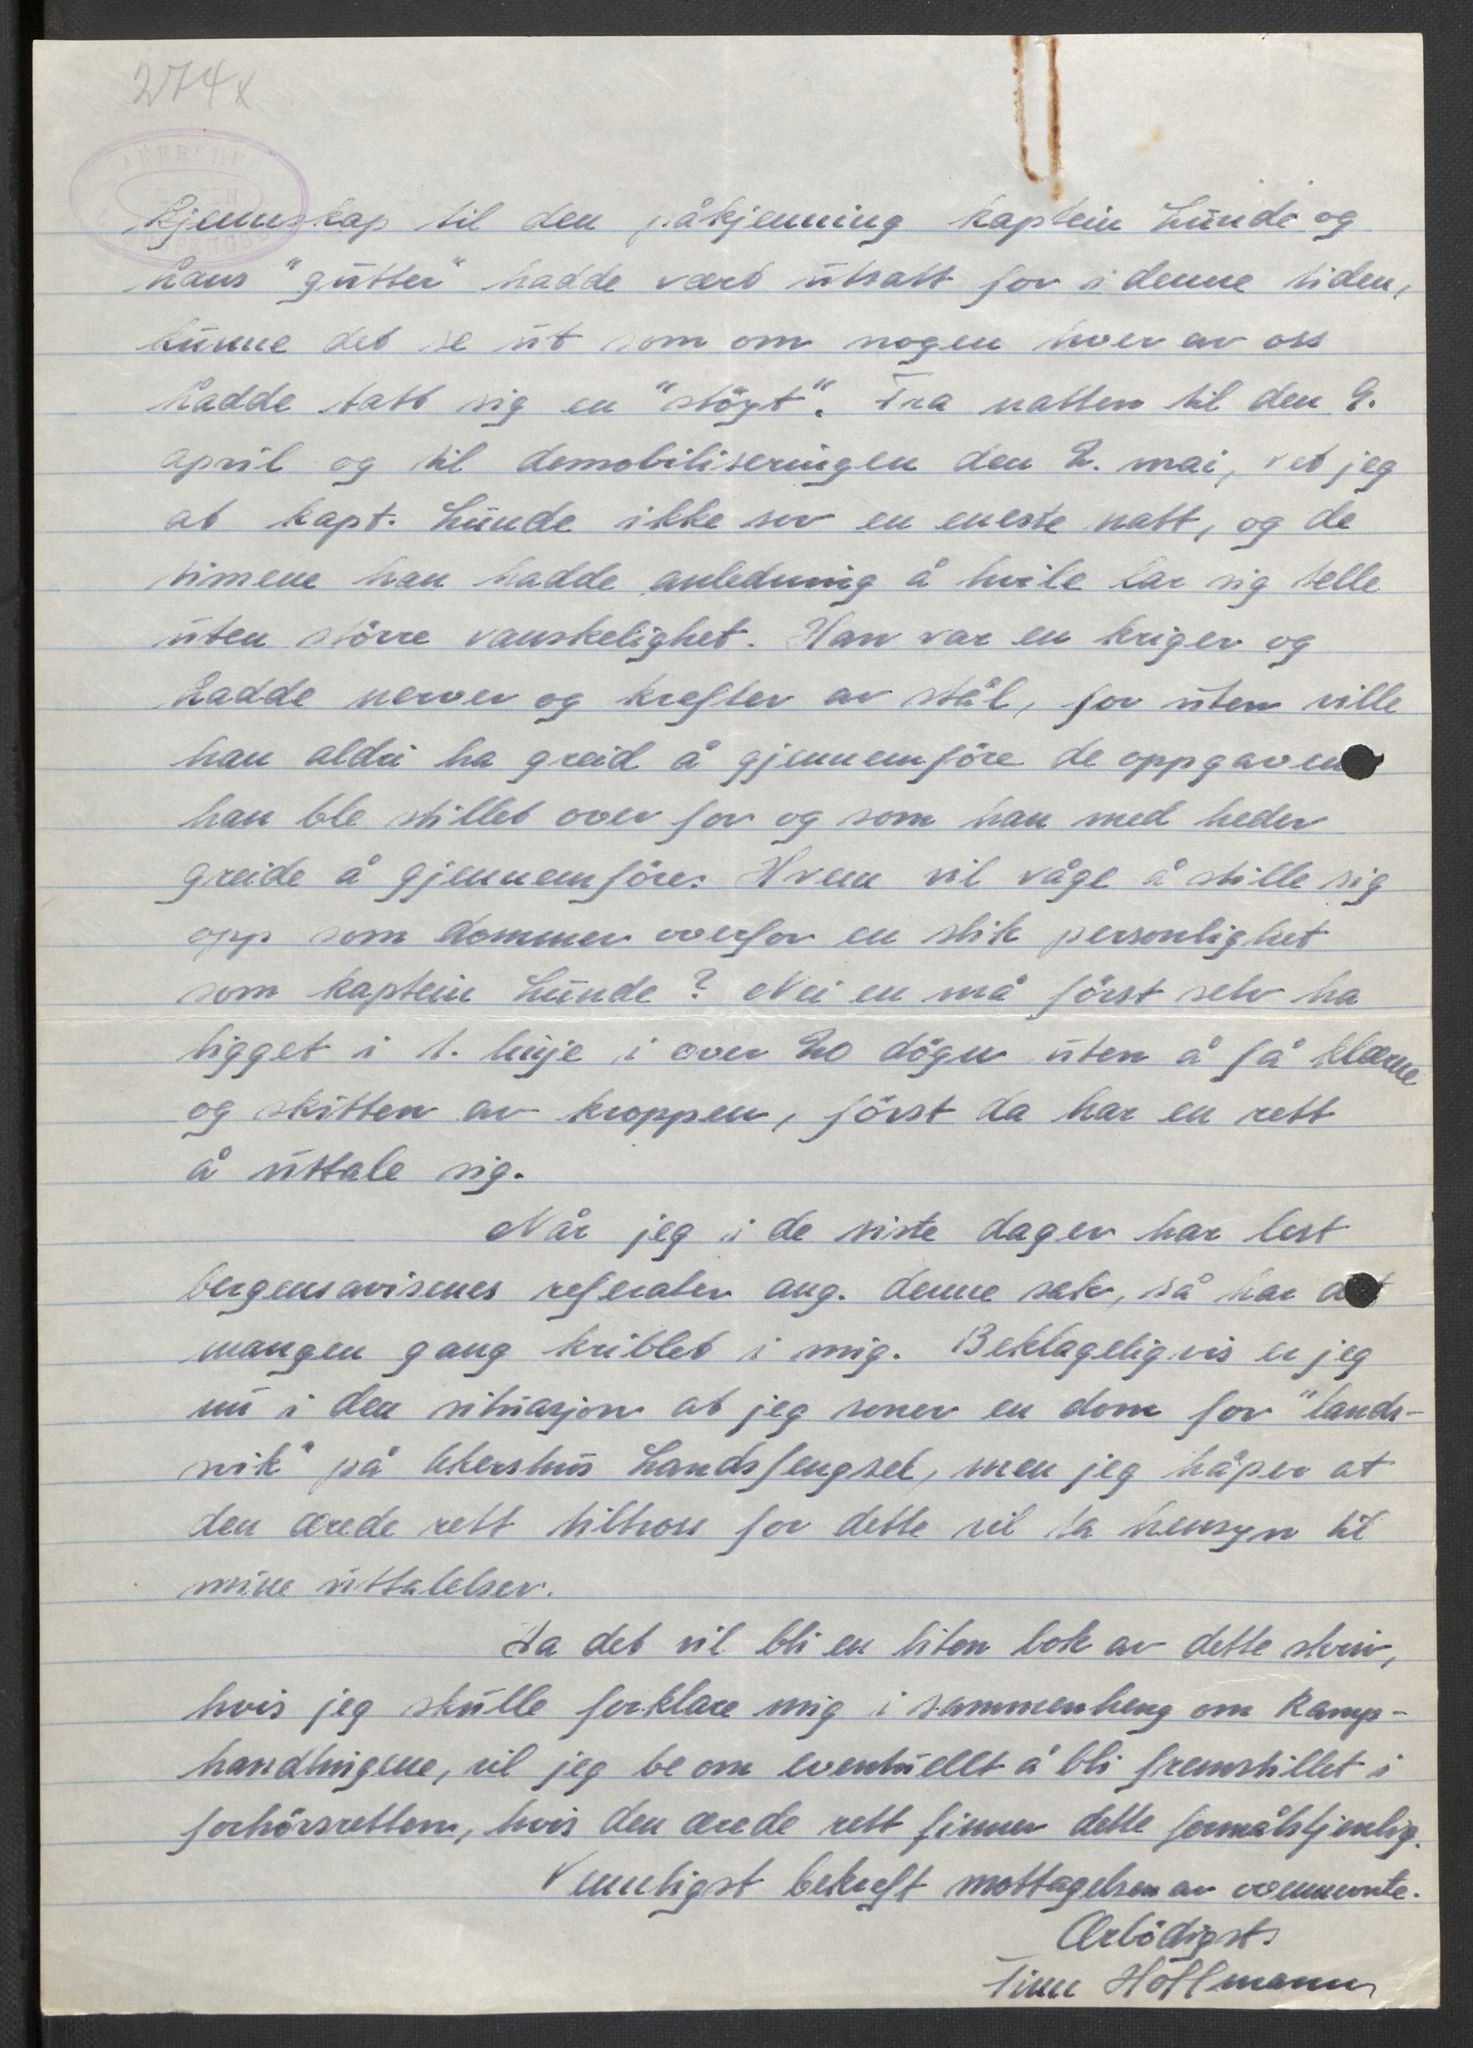 274x
AKERSHUS
LANDSFENGSEL
kjennskap til den påkjenning kaptein Lunde og
hans "gutter" hadde vært utsatt for i denne tiden,
kunne det se ut som om nogen hver av oss
hadde tatt sig en "støyt". Fra natten til den 9.
april og til demobiliseringen den 2. mai, vet jeg
at kapt. Lunde ikke sov en eneste natt, og de
timene han hadde anledning å hvile lar sig telle
uten større vanskelighet. Han var en kriger og
hadde nerver og krefter av stål, for uten ville
han aldri ha greid å gjennemføre de oppgaven
han ble stillet over for og som han med heder
greide å gjennemføre. Hvem vil våge å stille sig
opp som dommer overfor en slik personlighet
som kaptein Lunde? Nei en må først selv ha
ligget i 1. linje i over 20 døgn uten å få klærne
og skitten av kroppen, først da har en rett
å uttale sig.
Når jeg i de siste dager har lest
bergensavisenes referater ang. denne sak, så har det
mangen gang kriblet i mig. Beklageligvis er jeg
nu i den situasjon at jeg soner en dom for "lands-
svik" på Akershus Landsfengsel, men jeg håper at
den ærede rett tiltross for dette vil ta hensyn til
mine uttalelser.
Da det vil bli en liten bok av dette skriv,
hvis jeg skulle forklare mig i sammenheng om kamp-
handlingene, vil jeg be om eventuellt å bli fremstillet i
forhørsretten, hvis den ærede rett finner dette formålstjenlig.
Vennligst bekreft mottagelsen av ovennevnte.
Ærbødigst.
Finn Hoffmann